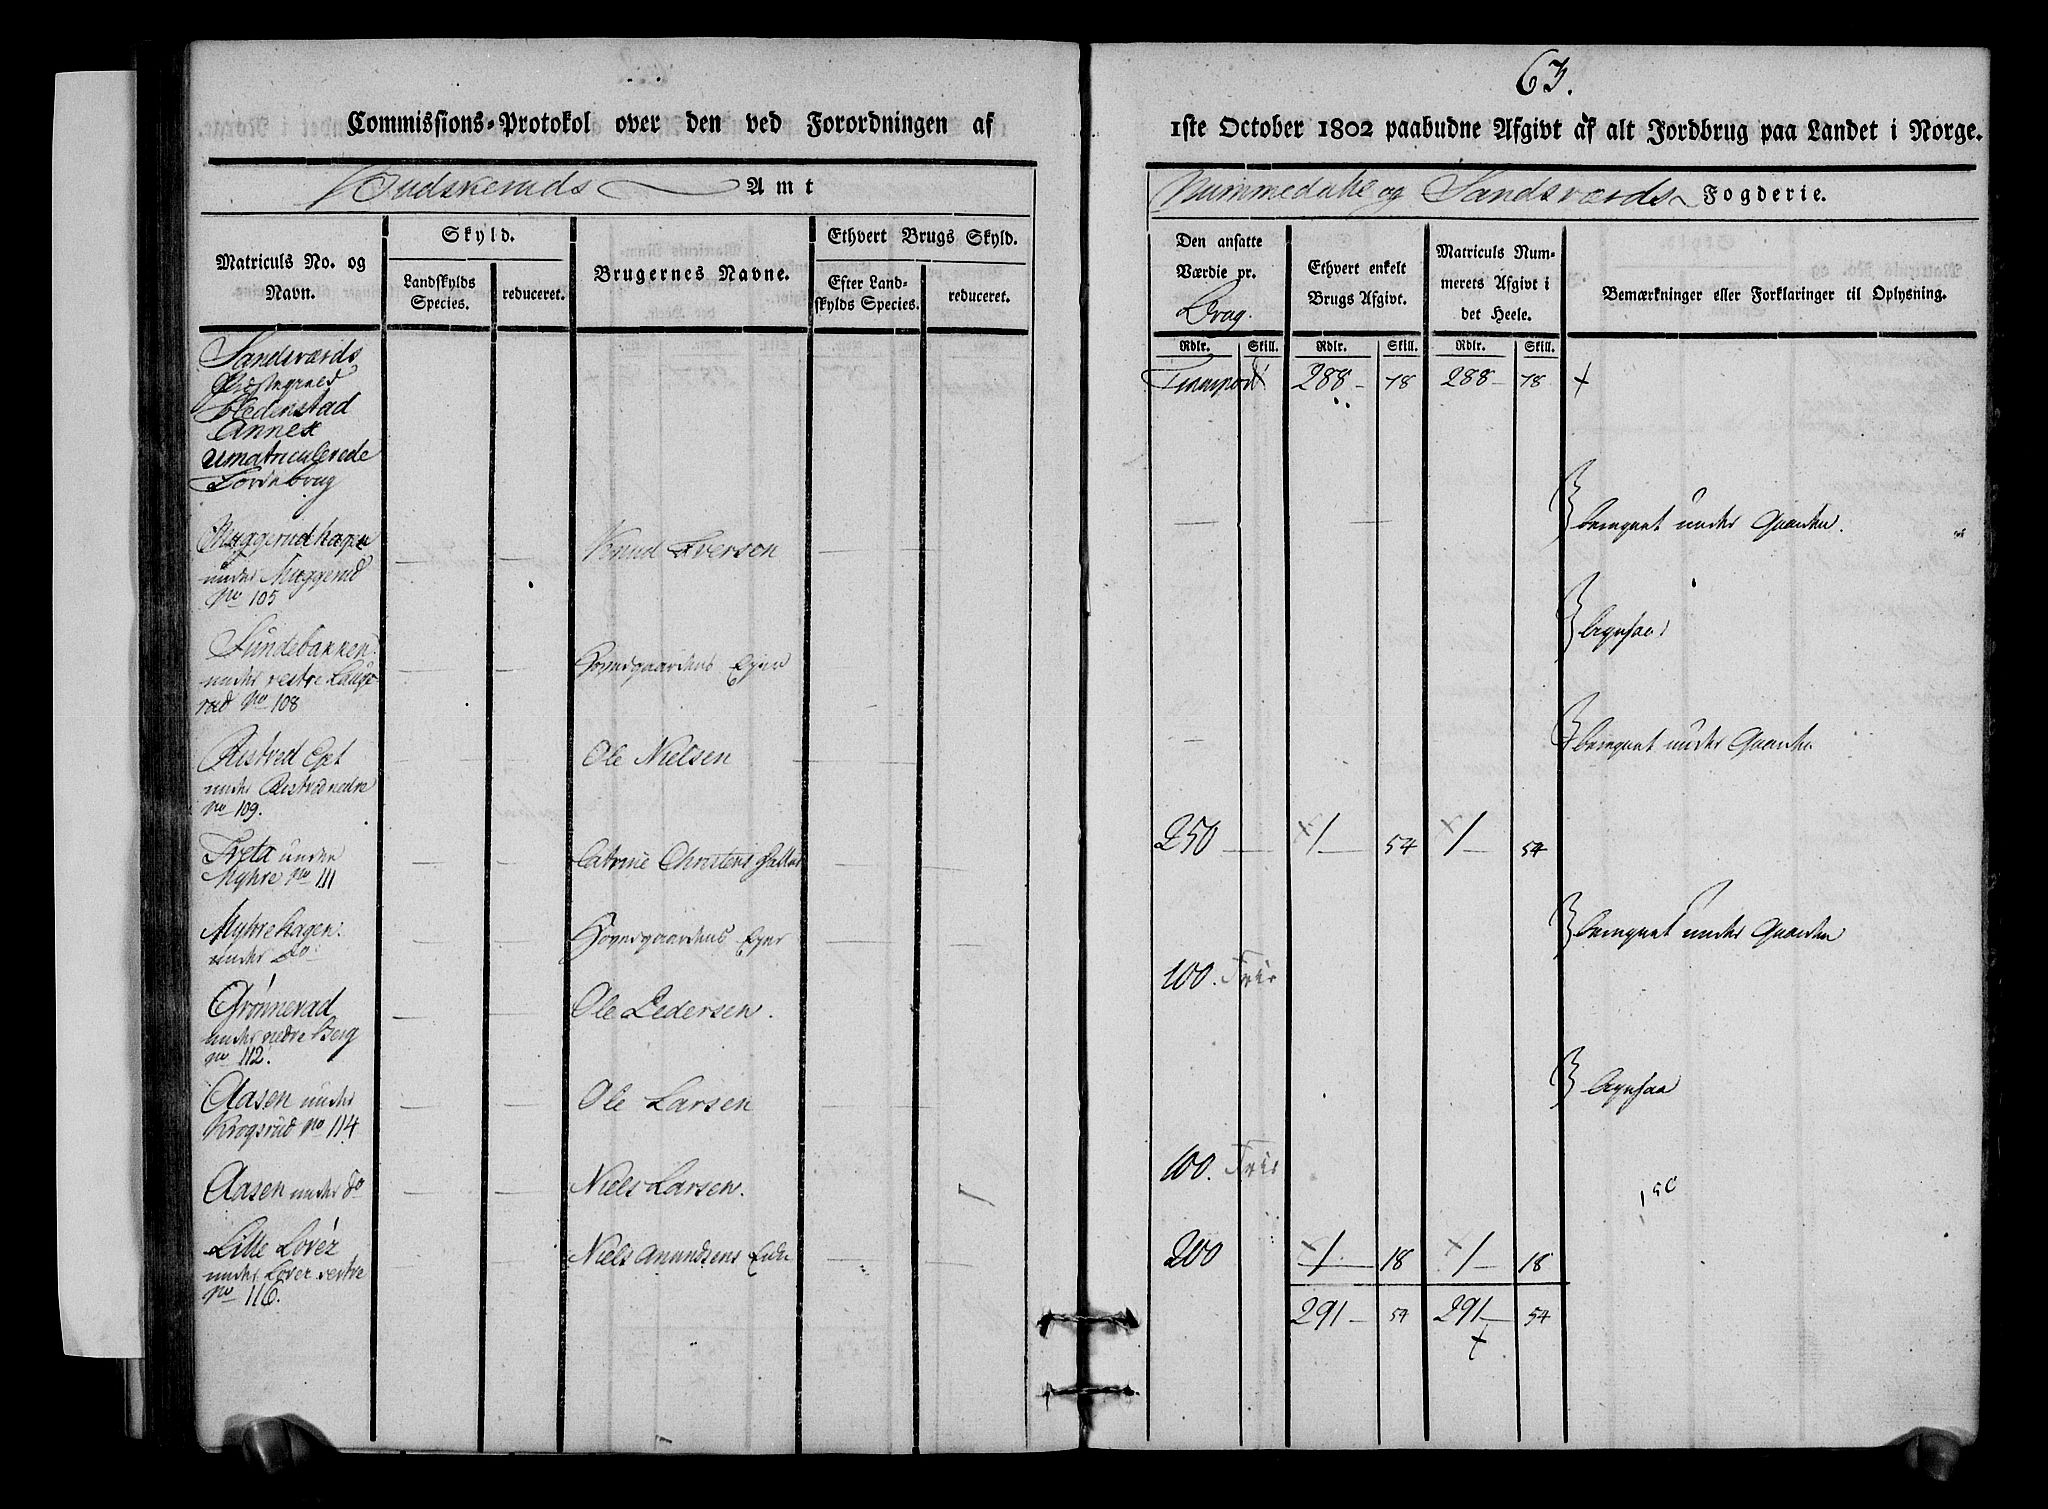 63.
Commissions-Protokol over den ved Forordningen af
1ste October 1802 paabudne Afgivt af alt Jordbrug paa Landet i Norge.
Budskeruds Amt
Nummedahl og Sandsværds Fogderie.
Matriculs No. og Navn.
Skyld.
Landskylds Species.
reduceret.
Brugernes Navne.
Ethvert Brugs Skyld.
Efter Landskylds Species.
reduceret.
Den ansatte Værdie pr.
Brug.
Ethvert enkelt Brugs Afgivt.
Matriculs Nummerets Afgivt i det Heele.
Bemærkninger eller Forklaringer til Oplysning.
Rdlr. Skill. Rdlr. Skill. Rdlr. Skill.
Sandsværds
Præstegield
Hedenstad
Annex
Umatriculerede
Jordebrug
Transport 288 - 78 288 - 78
Muggerudhagen
under Muggerud
No 105
Knud Iversen
beregnet under Gaarden.
Sundebakken
under vestre Lauge-
rud No 108
Hovedgaardens Eyer
ligesaa
Ristved Eyet
under Ristvednedre
No 109.
Ole Nielsen
beregnet under Gaarden
Tveta under
Myhre No 111
Catrine Christens Datter
250 1 - 54 1 - 54
Myhrehagen
under Do
Hovedgaardens Eyer
beregnet under Gaarden
Grönnerud
under nedre Berg
No 112.
Ole Pedersen.
100. Frie
Aasen under
Krogsrud No 114
Ole Larsen
ligesaa
Aasen under do
Niels Larsen.
100. Frie
Lille Lover
under Lover vestre
No 116.
Niels Amundsens Enke
200 1 - 18 1 - 18
291 - 54 291 - 54